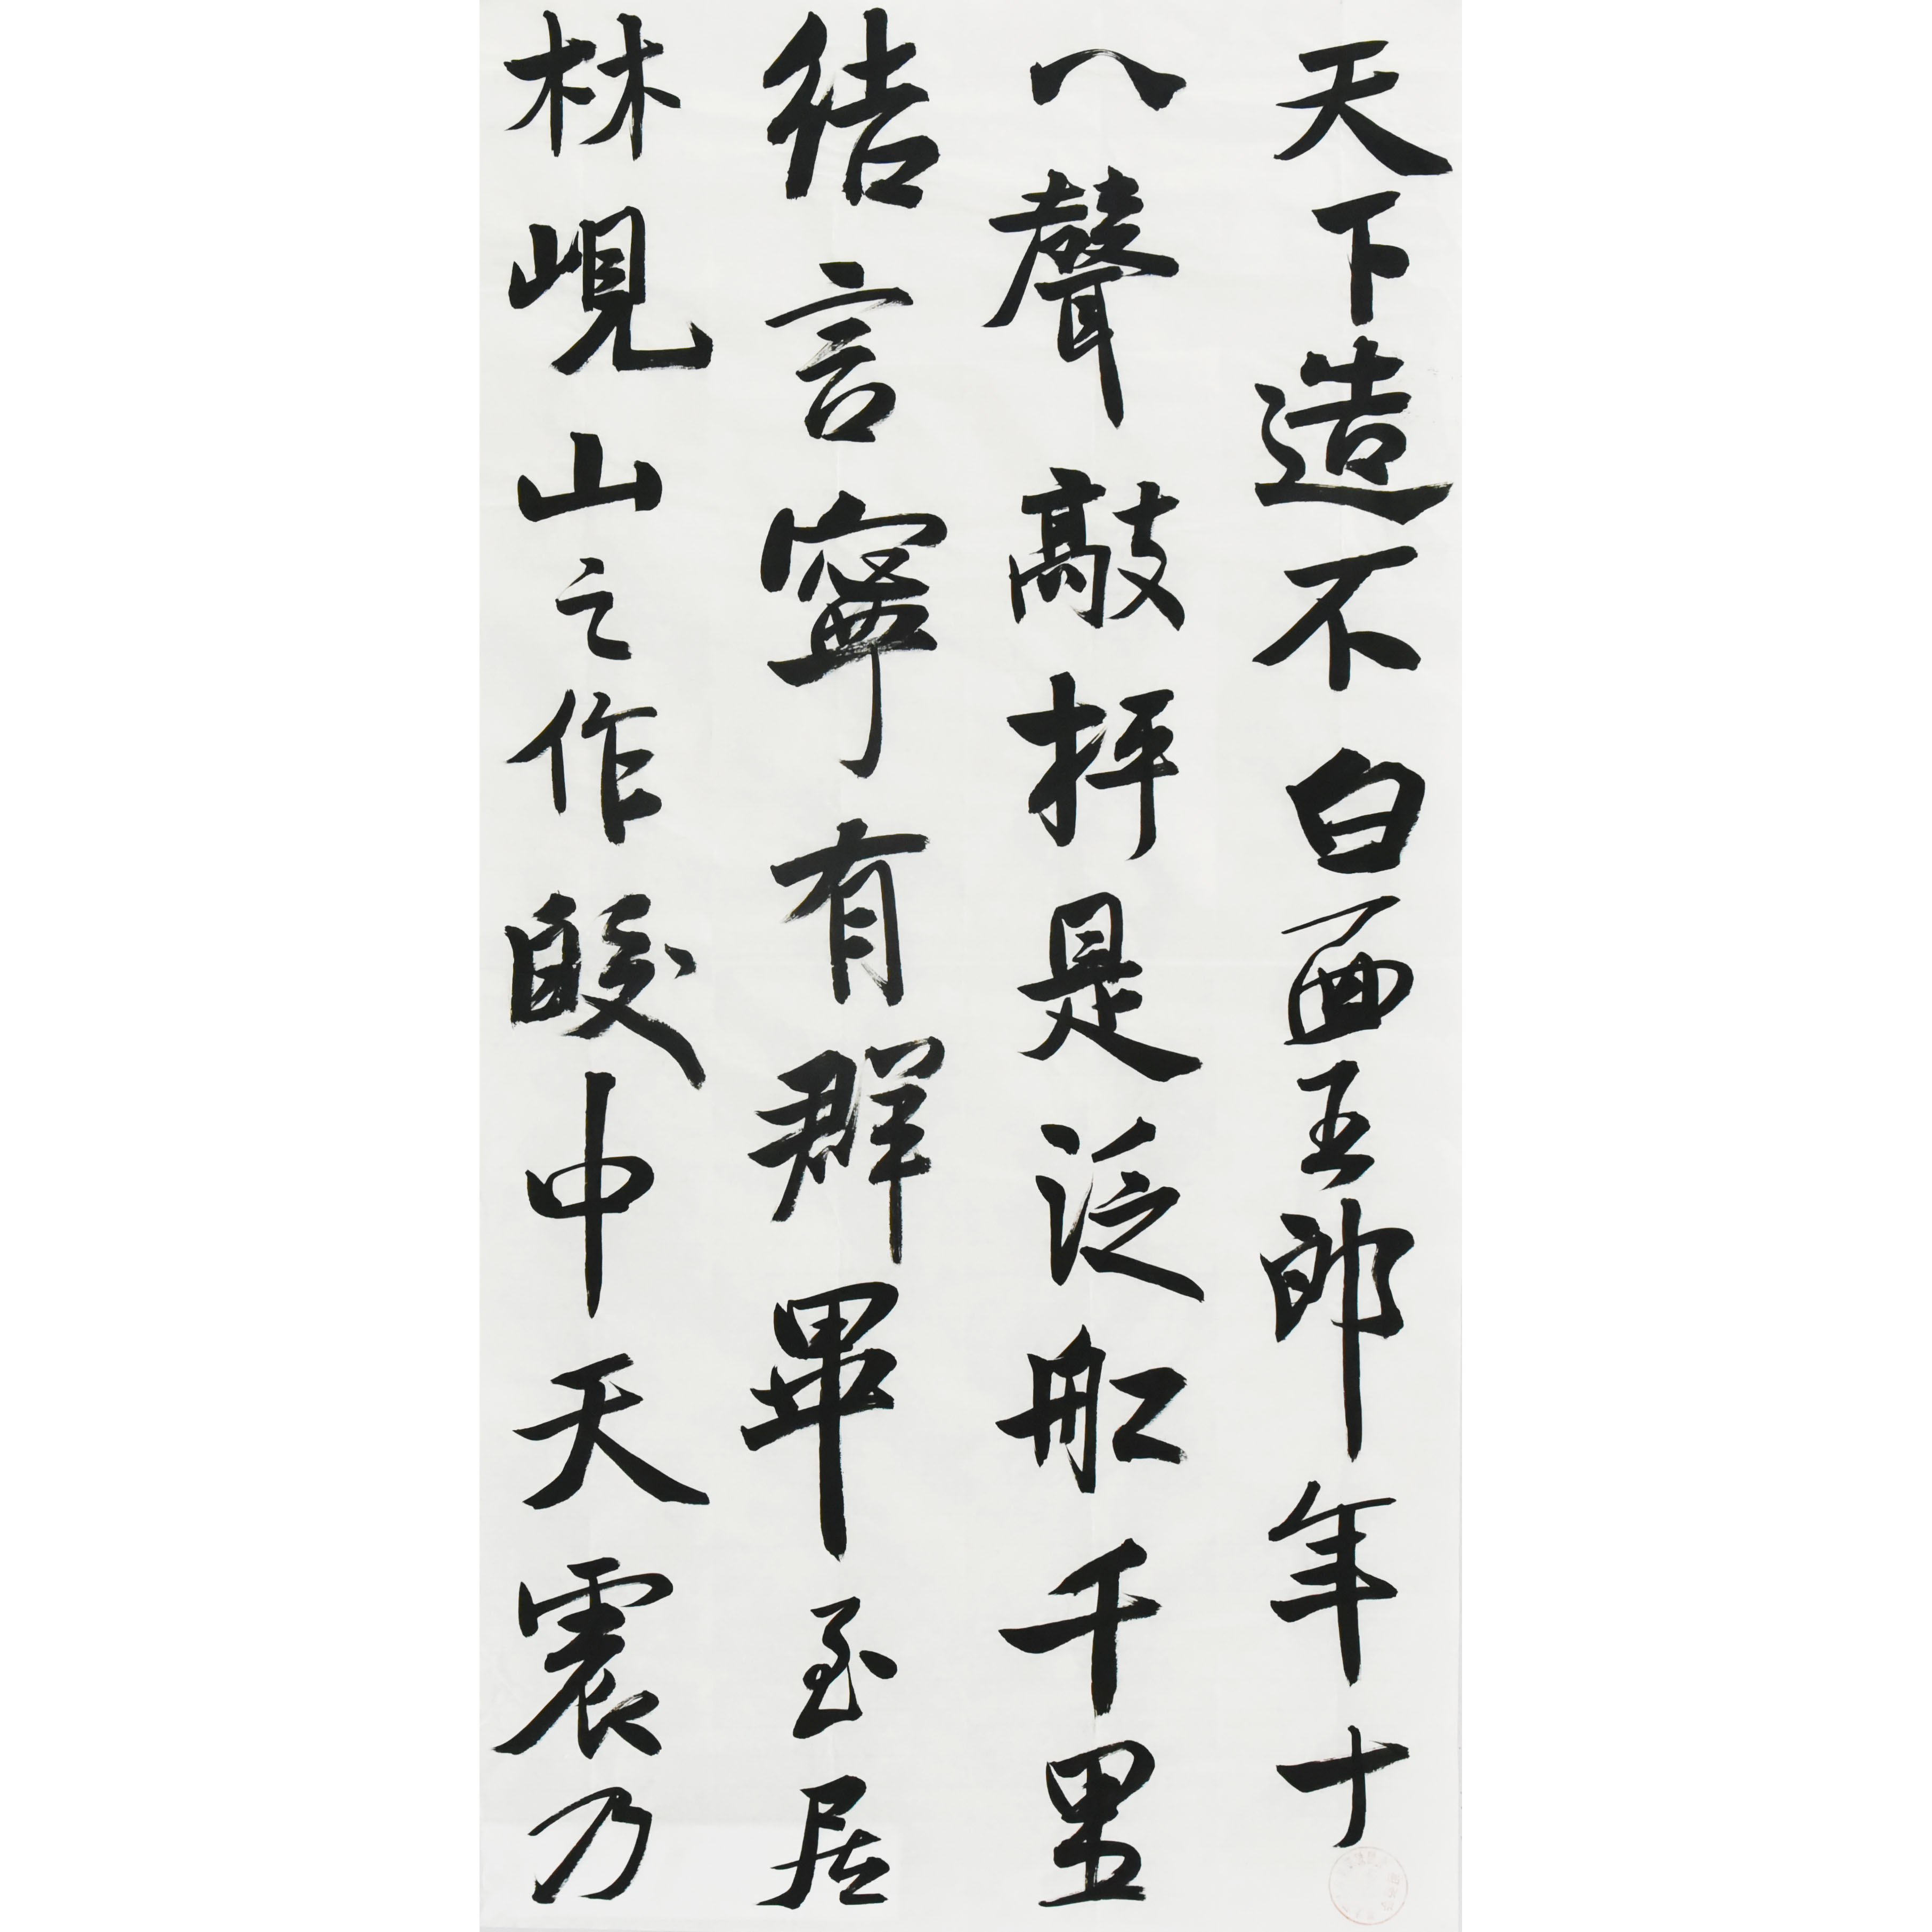 天下造不白面玉郎年十
八聲敲抨是泛舡千里
結言寧有群畢至居
林峴山之作皎中天震乃